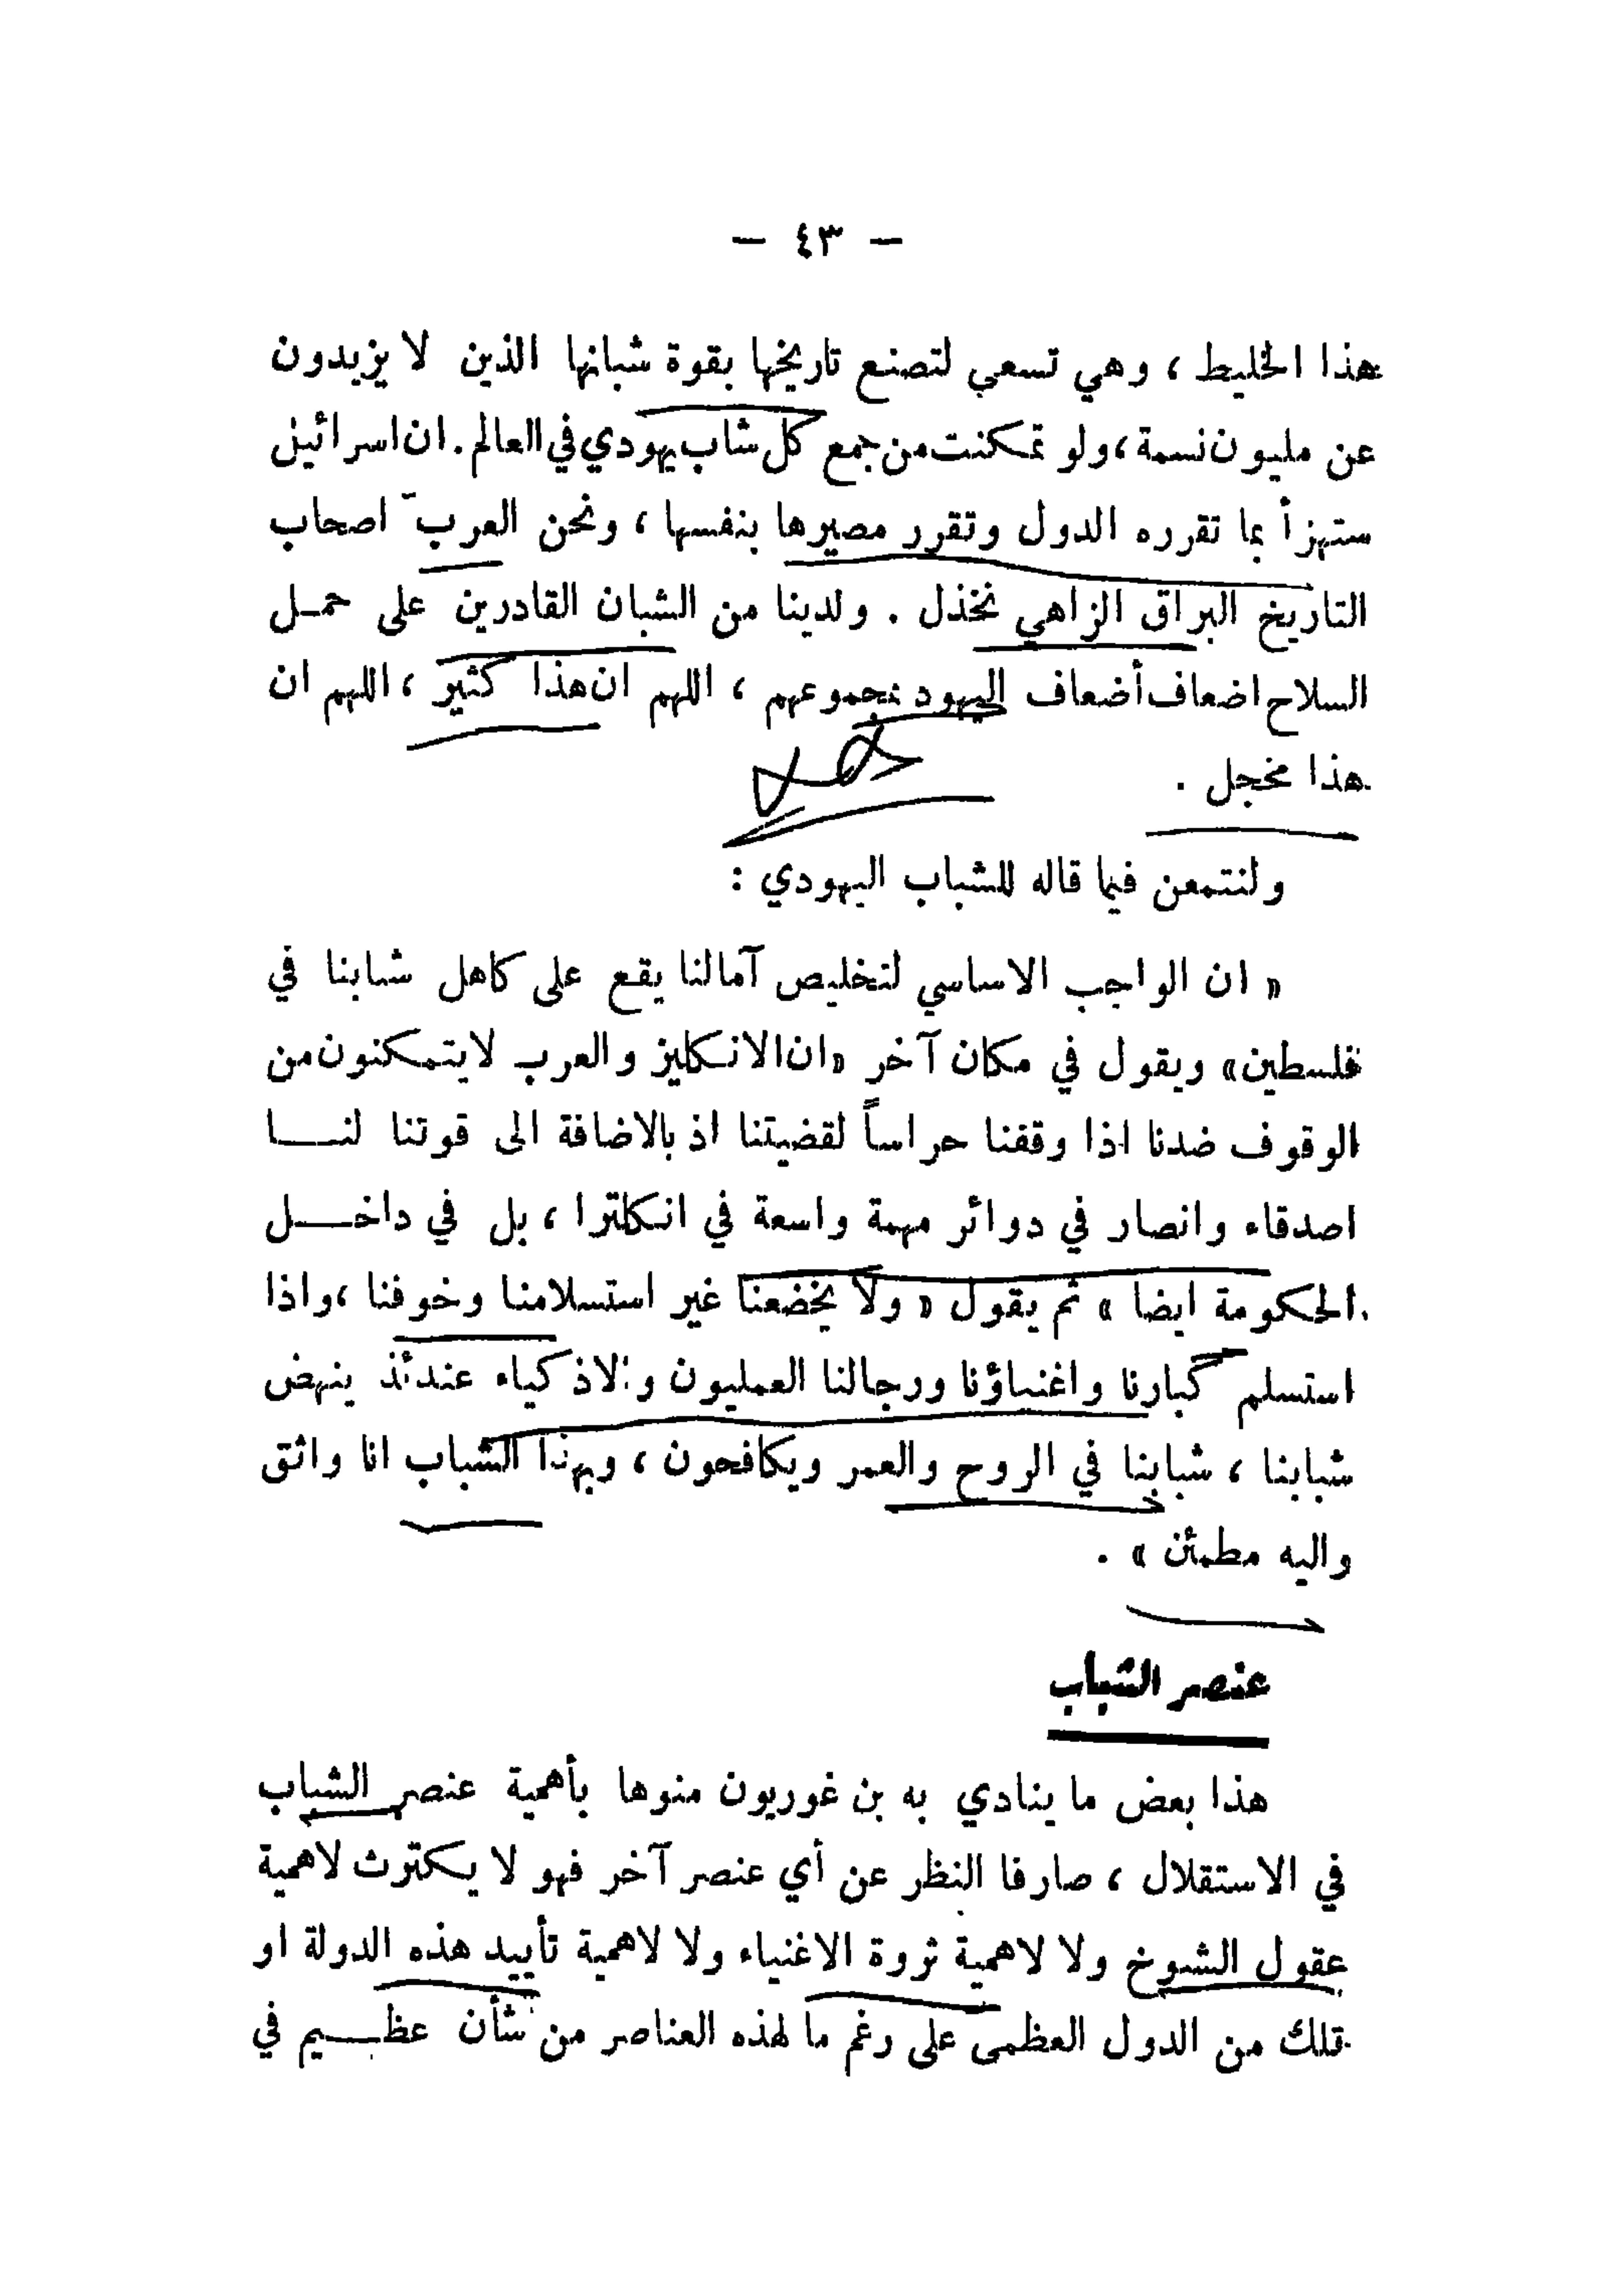 — ٤٣ —
هذا الخليط ، وهي تسعى لتصنع تاريخها بقوة شبانها الذين لا يزيدون
عن مليون نسمة ، ولو تمكنت من جمع كل شاب يهودي في العالم . ان اسرائيل
ستهزأ بما تقرره الدول وتقرر مصيرها بنفسها ، ونحن العرب اصحاب
التاريخ البراق الزاهي نخذل . ولدينا من الشبان القادرين على حمــل
السلاح اضعاف أضعاف اليهود بمجموعهم ، اللهم ان هذا كثير ، اللهم ان
هذا مخجل .
ولنتمعن فيما قاله للشباب اليهودي :
« ان الواجب الاساسي لتخليص آمالنا يقع على كاهل شبابنا في
فلسطين» ويقول في مكان آخر «ان الانكليز والعرب لايتمكنون من
الوقوف ضدنا اذا وقفنا حراساً لقضيتنا اذ بالاضافة الى قوتنا لنــــا
اصدقاء وانصار في دوائر مهمة واسعة في انكلترا ، بل في داخـــل
الحكومة ايضا » ثم يقول « ولا يخضعنا غير استسلامنا وخوفنا ، واذا
استسلم كبارنا واغنياؤنا ورجالنا العمليون والاذكياء عندئذ ينهض
شبابنا ، شبابنا في الروح والعمر ويكافحون ، وبهذا الشباب انا واثق
واليه مطمئن » .
عنصر الشباب
هذا بعض ما ينادي به بن غوريون منوها بأهمية عنصر الشباب
في الاستقلال ، صارفا النظر عن أي عنصر آخر فهو لا يكترث لاهمية
عقول الشوخ ولا لاهمية ثروة الاغنياء ولا لاهمية تأييد هذه الدولة او
تلك من الدول العظمى على رغم ما لهذه العناصر من شأن عظـــيم في